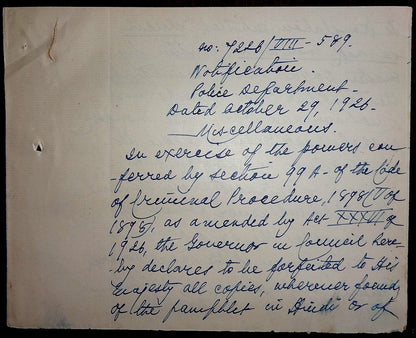 no: 7226/VIII - 589.
Notification.
Police Department -
Dated October 29, 1926.
Miscellaneous.
In exercise of the powers con
-ferred by section 99 A - of the Code
of Criminal Procedure, 1898 (V of
1898), as amended by Act XXXVI of
1926, the Governor in Council here-
by declares to be forfeited to His
Majesty all copies, wherever found,
of the pamphlet in Hindi or of